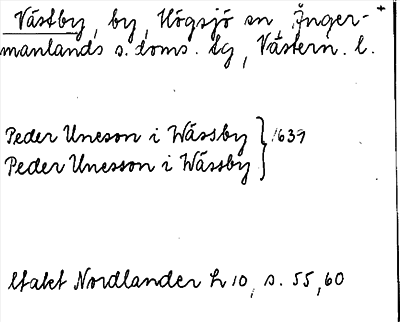 Västby, by, Högsjö sn, Ånger-
manlands s. doms. lg, Västern. l.
Peder Uneson i Wässby } 1639
Peder Unesson i Wässby
Citatet Nordlander h 10, s. 55, 60